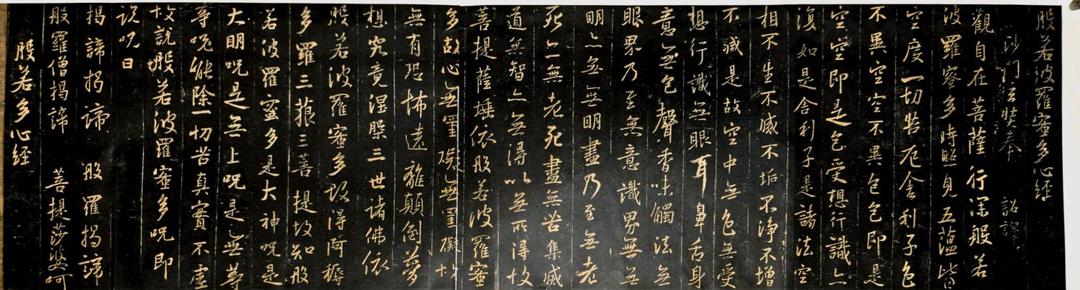 般若波羅蜜多心經
沙門玄奘奉 詔譯
觀自在菩薩行深般若
波羅蜜多時照見五蘊皆
空度一切苦厄舍利子色
不異空空不異色色即是
空空即是色受想行識亦
復如是舍利子是諸法空
相不生不滅不垢不淨不增
不減是故空中無色無受
想行識無眼耳鼻舌身
意無色聲香味觸法無
眼界乃至無意識界無無
明亦無無明盡乃至無老
死亦無老死盡無苦集滅
道無智亦無得以無所得故
菩提薩埵依般若波羅蜜
多故心無罣礙無罣礙故
無有恐怖遠離顛倒夢
想究竟涅槃三世諸佛依
般若波羅蜜多故得阿耨
多羅三藐三菩提故知般
若波羅蜜多是大神呪是
大明呪是無上呪是無等
等呪能除一切苦真實不虛
故說般若波羅蜜多呪即
說呪曰
揭諦揭諦 般羅揭諦
般羅僧揭諦 菩提莎婆呵
般若多心經